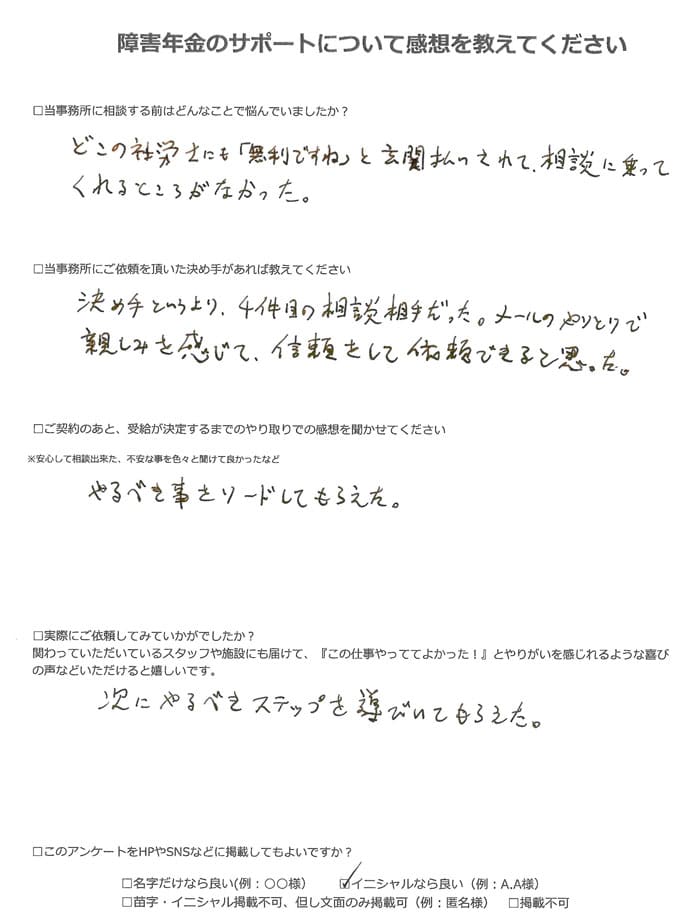 障害年金のサポートについて感想を教えてください
□当事務所に相談する前はどんなことで悩んでいましたか？
どこの社労士にも「無利ですね」と玄関払いされて、相談に乗って
くれるところがなかった。
□当事務所にご依頼を頂いた決め手があれば教えてください
決め手というより、4件目の相談相手だった。メールのやりとりで
親しみを感じて、信頼をして依頼できると思った。
□ご契約のあと、受給が決定するまでのやり取りでの感想を聞かせてください
※安心して相談出来た、不安な事を色々と聞けて良かったなど
やるべき事をリードしてもらえた。
□実際にご依頼してみていかがでしたか？
関わっていただいているスタッフや施設にも届けて、『この仕事やっててよかった！』とやりがいを感じれるような喜び
の声などいただけると嬉しいです。
次にやるべきステップを導びいてもらえた。
□このアンケートをHPやSNSなどに掲載してもよいですか？
□名字だけなら良い(例：〇〇様） ☑イニシャルなら良い（例：A.A様）
□苗字・イニシャル掲載不可、但し文面のみ掲載可（例：匿名様） □掲載不可